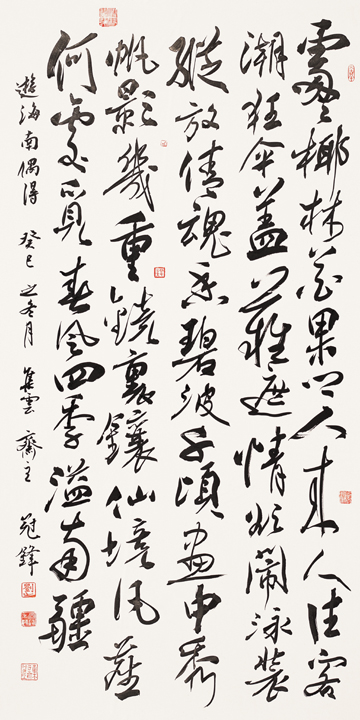 椰林花果人来人往客
潮狂傘蓋難遮情炽鬧泳裝
縱放倩魂香碧波千頃畫中秀
帆影幾重鏡裏鑲仙境风
何處見春风四季溢南疆
遊海南偶得 癸巳之冬月 集雲齋主 冠鋒